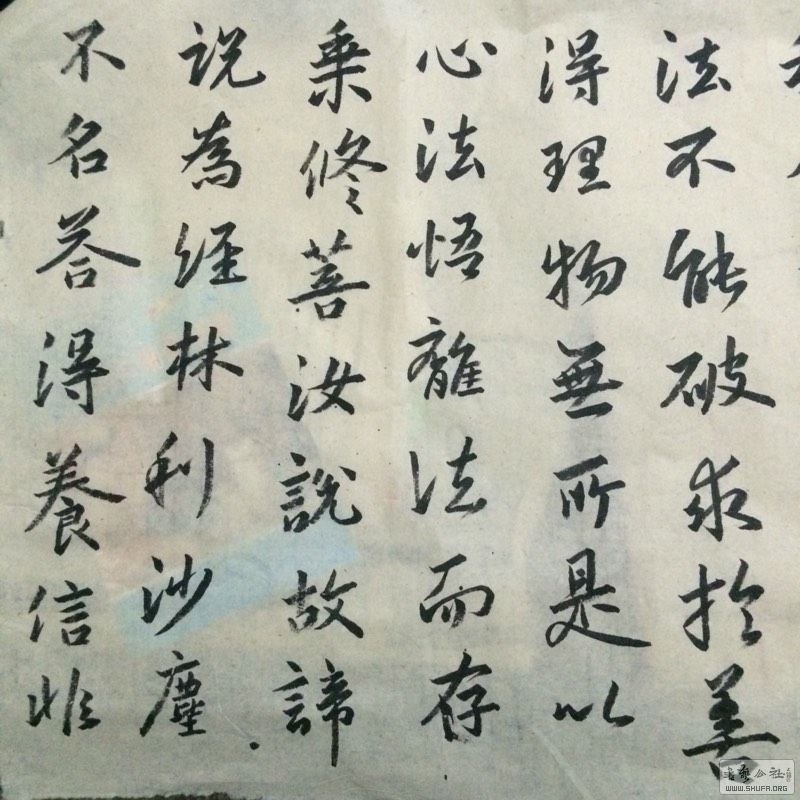 法不能破求於善
得理物無所是以
心法悟離法而存
乘修菩汝說故諦
说為经林利沙塵
不名答得養信非
書藝公社
WWW.SHUFA.ORG